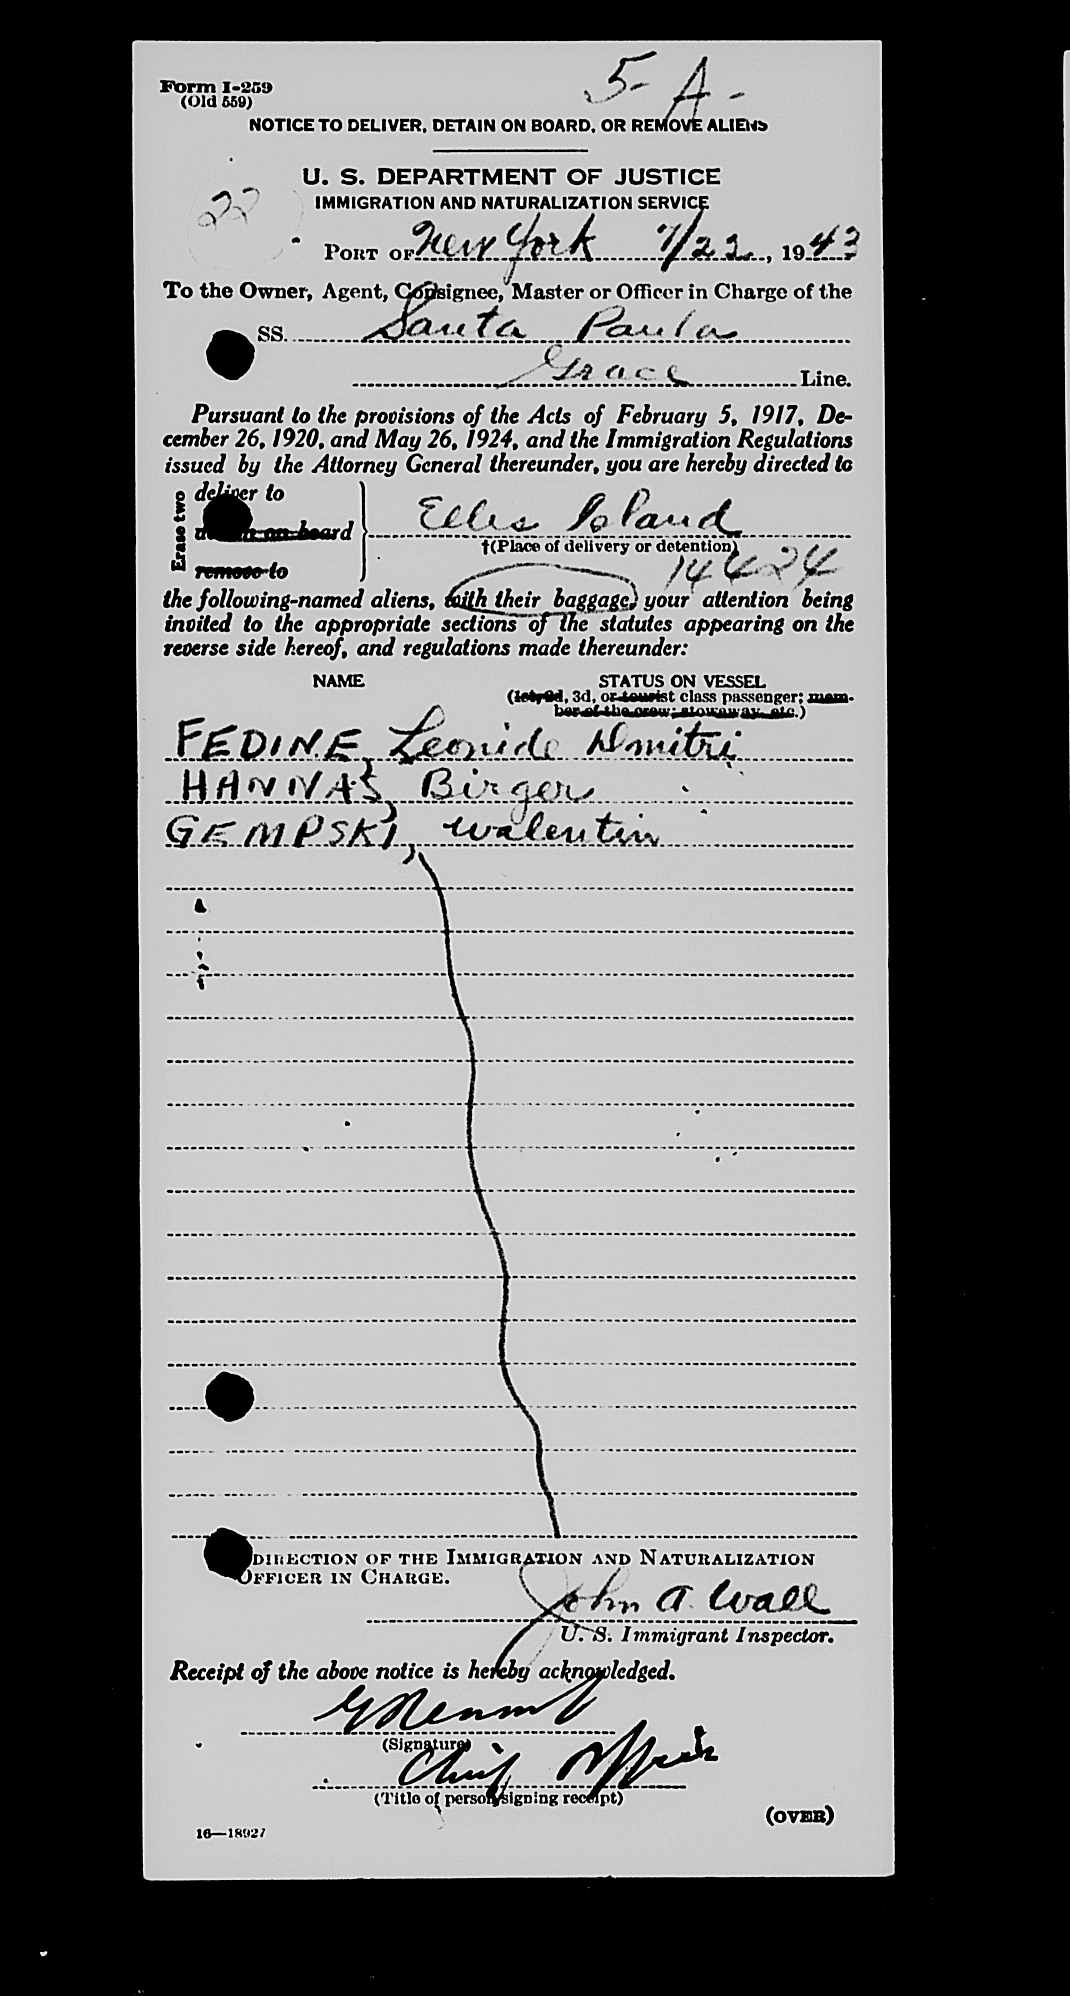 5-A-
Form I-259
(Old 559)
NOTICE TO DELIVER, DETAIN ON BOARD, OR REMOVE ALIENS
U. S. DEPARTMENT OF JUSTICE
IMMIGRATION AND NATURALIZATION SERVICE
22
PORT OF New York 7/22, 1943
To the Owner, Agent, Consignee, Master or Officer in Charge of the
SS. Santa Paula
Grace Line.
Pursuant to the provisions of the Acts of February 5, 1917, De-
cember 26, 1920, and May 26, 1924, and the Immigration Regulations
issued by the Attorney General thereunder, you are hereby directed to
Erase two
deliver to
detain on board
remove to
Ellis Island
†(Place of delivery or detention)
14424
the following-named aliens, with their baggage, your attention being
invited to the appropriate sections of the statutes appearing on the
reverse side hereof, and regulations made thereunder:
NAME STATUS ON VESSEL
(1st, 2d, 3d, or tourist class passenger; mem-
ber of the crew; stowaway, etc.)
FEDINE, Leonide Dmitri
HANNAS, Birger
GEMPSKI, Walentin
DIRECTION OF THE IMMIGRATION AND NATURALIZATION
OFFICER IN CHARGE.
John A. Wall
U. S. Immigrant Inspector.
Receipt of the above notice is hereby acknowledged.
(Signature)
Chief
(Title of person signing receipt)
(OVER)
16—18927